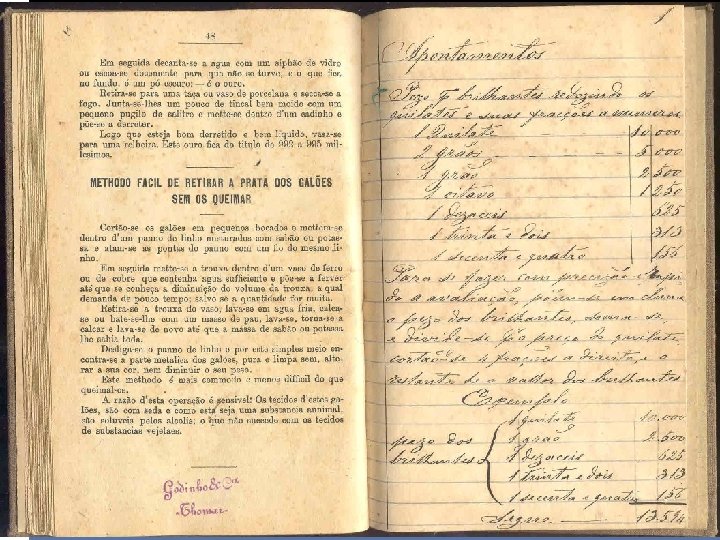 48
Em seguida decanta-se a agua com um siphão de vidro
ou escoa-se docemente para que não se turve, e o que fica
no fundo, é um pó escuro: — é o ouro.
Retira-se para uma taça ou vaso de porcelana e secca-se a
fogo. Junta-se-lhes um pouco de tincal bem moido com um
pequeno pugilo de salitre e mette-se dentro d'um cadinho e
põe-se a derreter.
Logo que esteja bem derretido e bem liquido, vasa-se
para uma relheira. Este ouro fica do titulo de 992 a 995 mil-
lesimos.
METHODO FACIL DE RETIRAR A PRATA DOS GALÕES
SEM OS QUEIMAR
Cortão-se os galões em pequenos bocados e mettem-se
dentro d'um panno de linho misturados com sabão ou potas-
sa e atam-se as pontas do panno com um fio do mesmo li-
nho.
Em seguida mette-se a trouxa dentro d'um vaso de ferro
ou de cobre que contenha agua sufficiente e põe-se a ferver
até que se conheça a diminuição do volume da trouxa, a qual
demanda de pouco tempo; salvo se a quantidade for muita.
Retira-se a trouxa do vaso; lava-se em agua fria, calca-
se ou bate-se-lhe com um masso de pau, lava-se, torna-se a
calcar e lava-se de novo até que a massa de sabão ou potassa
lhe sahia toda.
Desliga-se o panno de linho e por este simples meio en-
contra-se a parte metalica dos galões, pura e limpa sem, alte-
rar a sua cor, nem diminuir o seu peso.
Este methodo é mais commodo e menos difficil do que
queimal-os.
A razão d'esta operação é sensivel: Os tecidos d'estes ga-
lões, são com seda e como esta seja uma substancia annimal,
são soluveis pelos alcalis; o que não succede com os tecidos
de substancias vejetaes.
Godinho & Cia
Thomar
1
Apontamentos
Pezo p brilhantes reduzindo os
quilates e suas fracções a numeros
1 Quilate 10.000
2 grãos 5.000
1 grão 2.500
1 oitavo 1250
1 dezaceis 625
1 trinta e dois 313
1 secenta e quatro 156
Para se fazer com precizão
do a avaliação, põem-se em
o pezo dos brilhantes, soma-se
e divide-se p preço do quilate,
cortão-se fracções a direita, e o
restante é o vallor dos brilhantes
Exemplo
1 quilate 10.000
pezo dos 1 grão 2.500
brilhantes 1 dezaceis 625
1 trinta e dois 313
1 secenta e quatro 156
13.594